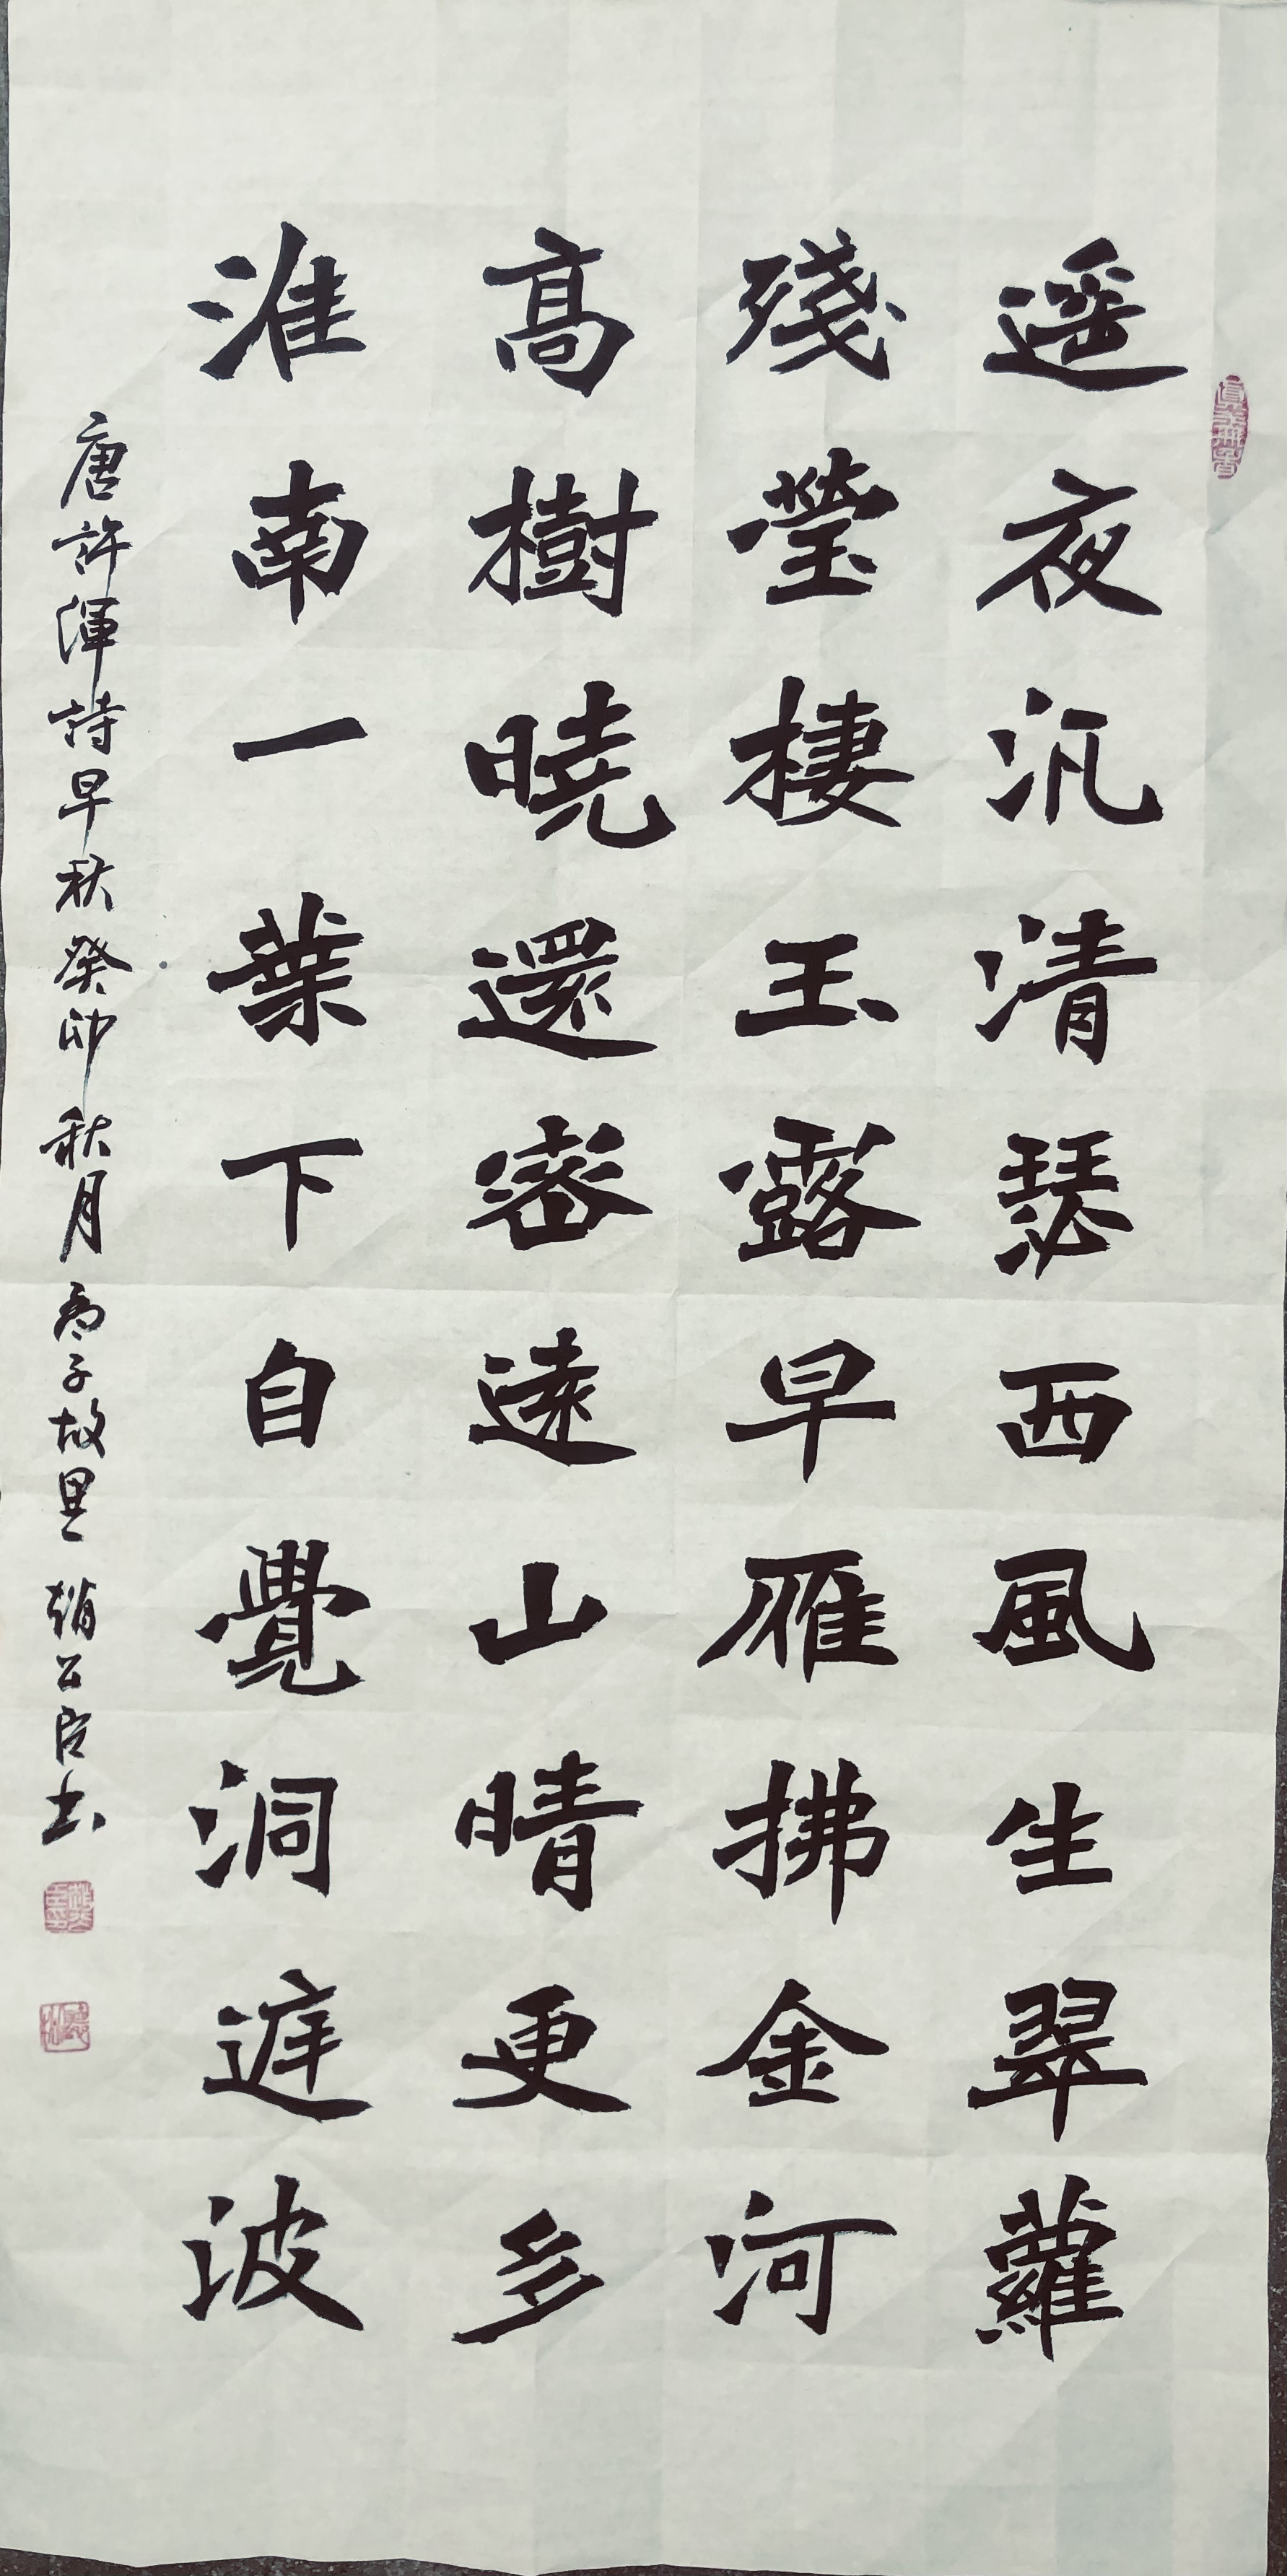 遥夜汎清瑟西風生翠蘿
殘瑩棲玉露早雁拂金河
高樹曉還密遠山晴更多
淮南一葉下自覺洞庭波
唐許渾詩早秋癸卯秋月孟子故里趙公臣书